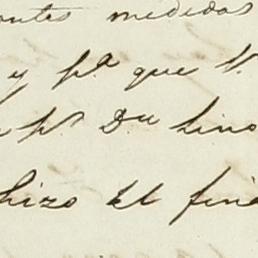 ontes medidas
y pª que V.
pr Dn Lino
hizo el fin